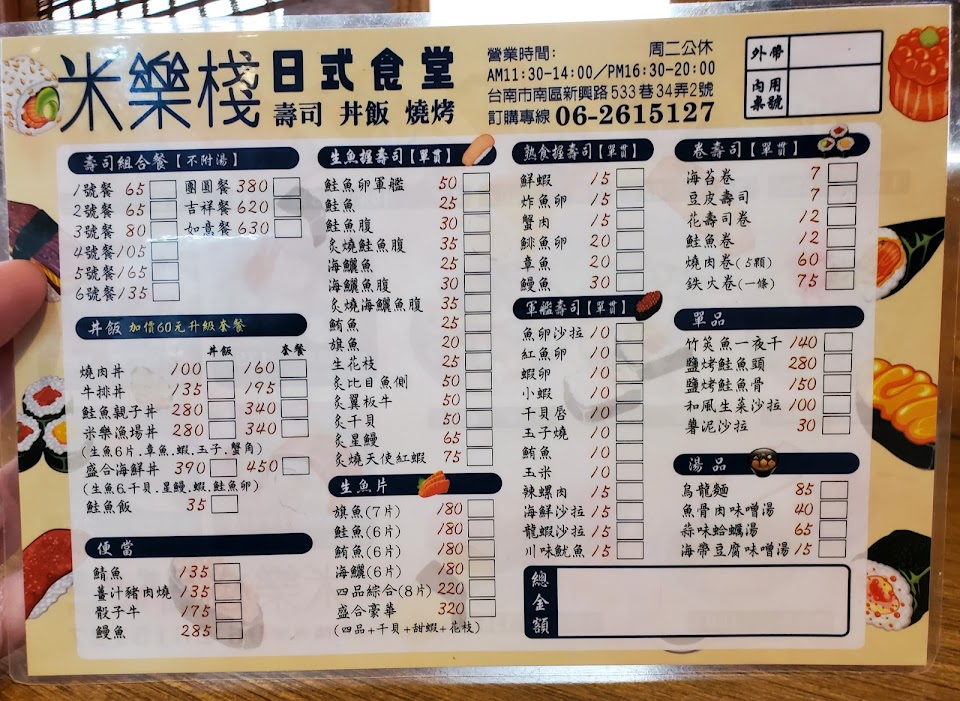 米樂棧 日式食堂
壽司 丼飯 燒烤
營業時間: 周二公休
AM11:30-14:00/PM16:30-20:00
台南市南區新興路533巷34弄2號
訂購專線 06-2615127
外帶
內用桌號
壽司組合餐【不附湯】
1號餐 65 團圓餐 380
2號餐 65 吉祥餐 620
3號餐 80 如意餐 630
4號餐 105
5號餐 165
6號餐 135
丼飯 加價60元升級套餐
丼飯 套餐
燒肉丼 100 160
牛排丼 135 195
鮭魚親子丼 280 340
米樂漁場丼 280 340
(生魚6片.章魚.蝦.玉子.蟹角)
盛合海鮮丼 390 450
(生魚6.干貝.星鰻.蝦.鮭魚卵)
鮭魚飯 35
便當
鯖魚 135
薑汁豬肉燒 135
骰子牛 175
鰻魚 285
生魚握壽司【單貫】
鮭魚卵軍艦 50
鮭魚 25
鮭魚腹 30
炙燒鮭魚腹 35
海鱺魚 25
海鱺魚腹 30
炙燒海鱺魚腹 35
鮪魚 25
旗魚 20
生花枝 25
炙比目魚側 50
炙翼板牛 50
炙干貝 50
炙星鰻 65
炙燒天使紅蝦 75
生魚片
旗魚(7片) 180
鮭魚(6片) 180
鮪魚(6片) 180
海鱺(6片) 180
四品綜合(8片) 220
盛合豪華 320
(四品+干貝+甜蝦+花枝)
熟食握壽司【單貫】
鮮蝦 15
炸魚卵 15
蟹肉 15
鯡魚卵 20
章魚 20
鰻魚 30
軍艦壽司【單貫】
魚卵沙拉 10
紅魚卵 10
蝦卵 10
小蝦 10
干貝唇 10
玉子燒 10
鮪魚 10
玉米 10
辣螺肉 15
海鮮沙拉 15
龍蝦沙拉 15
川味魷魚 15
卷壽司【單貫】
海苔卷 7
豆皮壽司 7
花壽司卷 12
鮭魚卷 12
燒肉卷(5顆) 60
鉄火卷(一條) 75
單品
竹筴魚一夜干 140
鹽烤鮭魚頭 280
鹽烤鮭魚骨 150
和風生菜沙拉 100
薯泥沙拉 30
湯品
烏龍麵 85
魚骨肉味噌湯 40
蒜味蛤蠣湯 65
海帶豆腐味噌湯 15
總金額